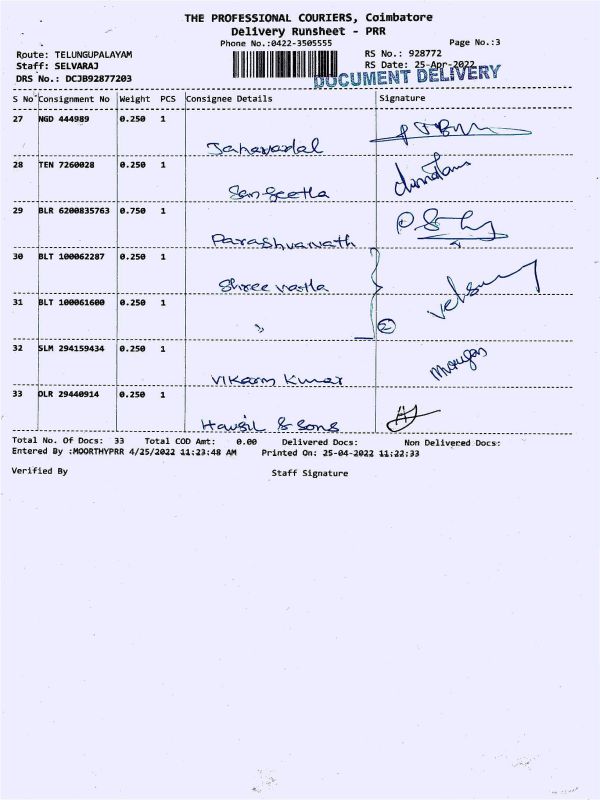 THE PROFESSIONAL COURIERS, Coimbatore
Delivery Runsheet - PRR
Phone No.:0422-3505555
Page No.:3
Route: TELUNGUPALAYAM
RS No.: 928772
Staff: SELVARAJ
RS Date: 25-Apr-2022
DRS No.: DCJB92877203
DOCUMENT DELIVERY
S No Consignment No Weight PCS Consignee Details Signature
27 NGD 444989 0.250 1
28 TEN 7260028 0.250 1
Sangeetha
29 BLR 6200835763 0.750 1
Parashvanath
30 BLT 100062287 0.250 1
Shree vastla
31 BLT 100061600 0.250 1
2
32 SLM 294159434 0.250 1
Murugan
Vikaram Kumar
33 DLR 29440914 0.250 1
& Sons
Total No. Of Docs: 33 Total COD Amt: 0.00 Delivered Docs: Non Delivered Docs:
Entered By :MOORTHYPRR 4/25/2022 11:23:48 AM Printed On: 25-04-2022 11:22:33
Verified By Staff Signature